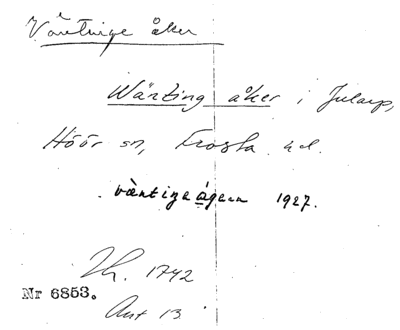 Väntinge åker
Wänting åker i Jularp,
Höör sn, Frosta hd.
väntingaågarn 1927.
Lh. 1742
Nr 6853.
Ant 13